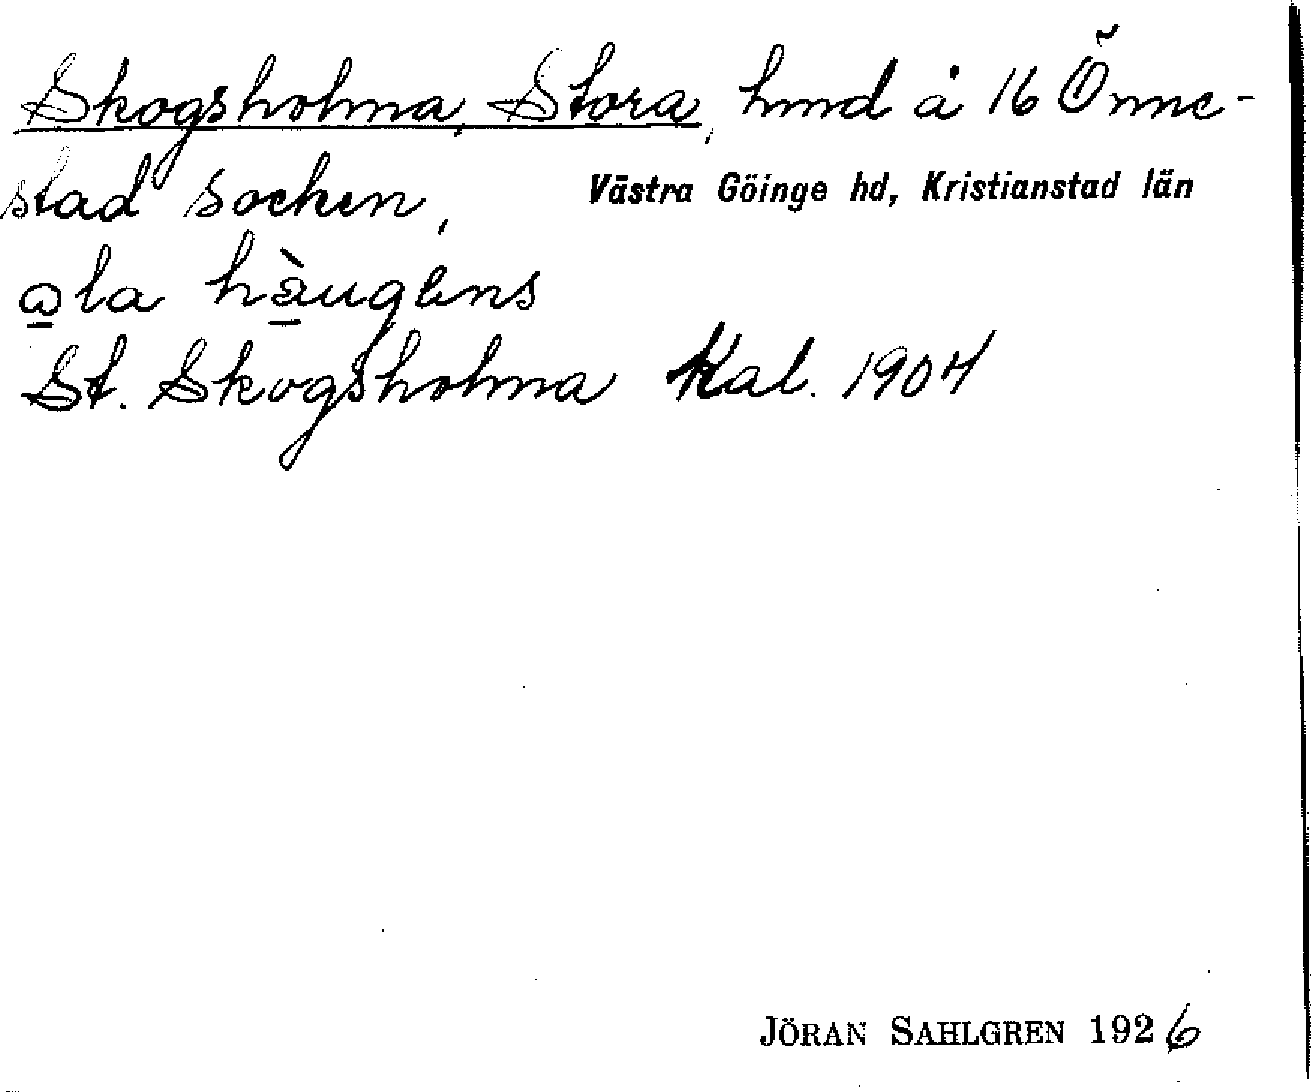 Skogsholma, Stora, hmd å 16 Önne-
stad socken, Västra Göinge hd, Kristianstad län
ola hàugens
St. Skogsholma Kal. 1904
JÖRAN SAHLGREN 1926